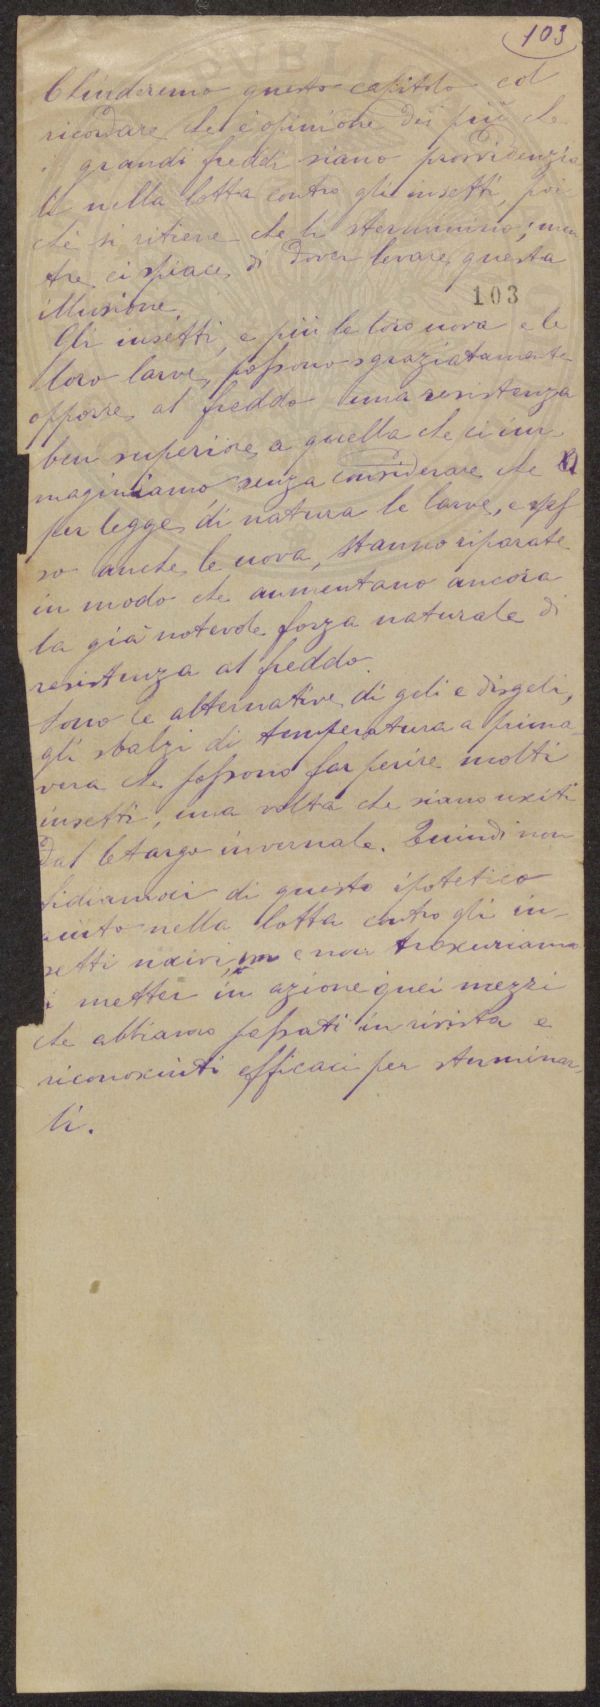 103
Chiuderemo questo capitolo col
ricordare che è opinione dei più che
i grandi freddi siano provvidenzia
li nella lotta contro gli insetti, poi
chè si ritiene che li sterminino; men
tre ci spiace di dover levare questa
illusione.
103
Gli insetti, e più le loro uova e le
loro larve, possono sgraziatamente
opporre al freddo una resistenza
ben superiore a quella che ci im
maginiamo, senza considerare che
per legge di natura le larve, e spes
so anche le uova, stanno riparate
in modo che aumentano ancora
la già notevole forza naturale di
resistenza al freddo.
Sono le alternative di geli e disgeli,
gli sbalzi di temperatura a prima
vera che possono far perire molti
insetti, una volta che siano usciti
dal letargo invernale. Quindi non
fidiamoci di questo ipotetico
aiuto nella lotta contro gli in-
setti nocivi, e non trascuriamo
i metter in azione quei mezzi
che abbiamo passati in rivista e
riconosciuti efficaci per sterminar-
li.